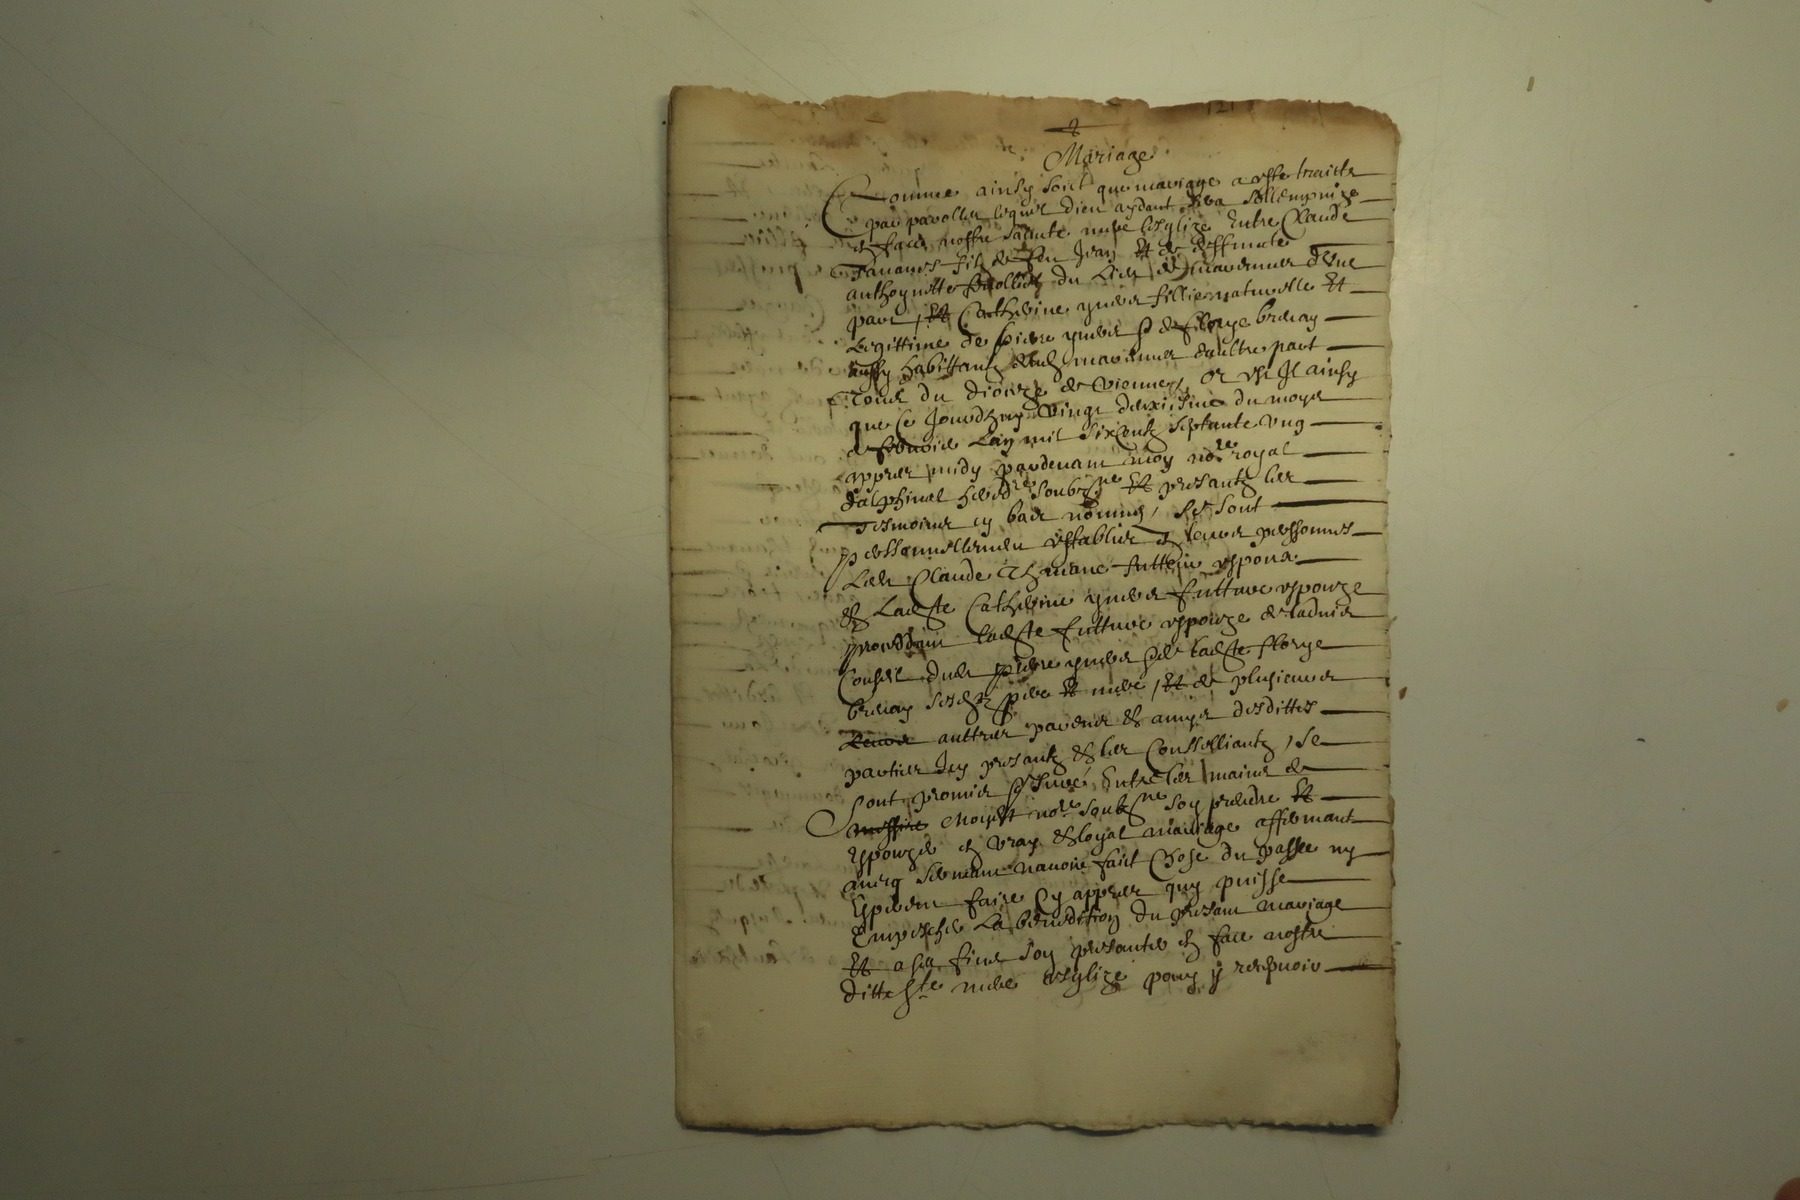 Mariage
Comme ainsy soict que mariage a esté traicté
par parolles lequel dieu aydant sera sollempnizé
en face nostre saincte mere esglize entre Claude
filz de feu Jean et de deffuncte
anthoynette du lieu de d'une
part, et Catherine ymber fillie naturelle et
legittime de pierre ymber et de florye
aussy habittantz dud d'aultre part
Tous du dioceze de Vienne, or est il ainsy
que ce jourdhuy vingt deuxiesme du moys
de febvrier l'an mil sixcentz septante ung
appres midy pardevant moy nore royal
dalphinal hered.re soubz.ne et presantz les
tesmoins cy bas nommes, se sont
personnellemen establies en leurs personnes
led Claude futteur espoux
et ladte Catherine ymber futture espouze
procedant ladte futture espouze de ladvis
conseil dud pierre ymber et de ladte florye
sesdtz pere et mere, et de plusieurs
auttres parens et amys desdittes
parties icy presantz et les conselliantz, se
sont promis et juré entre les mains de
moydt nore soubzne soy prendre et
espouzer en vray et loyal mariage affirmant
avecq sermant n'avoir faict chose du passé ny
esperent faire cy appres quy puisse
empescher la benediction du presant mariage
et a ses fins soy presanter en face nostre
ditte Ste mere esglize pour y recepvoir